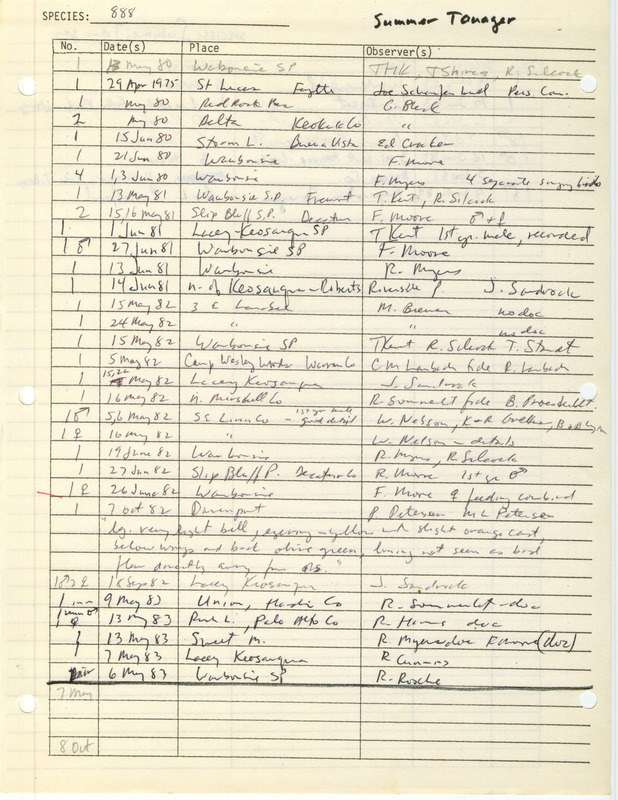 SPECIES: 888 Summer Tanager
No. Date(s) Place Observer(s)
1 13 May 80 Waubonsie SP THK, TShires, R. Silcock
1 29 Apr 1975 St Lucas Fayette Joe Schaufenbuel Pers. Com.
1 May 80 Red Rock Res C. Black
2 May 80 Delta Keokuk Co "
1 15 Jun 80 Storm L. Buena Vista Ed Crocker
1 21 Jun 80 Waubonsie F. Moore
4 1,3 Jun 80 Waubonsie F. Myers 4 separate singing birds
1 13 May 81 Waubonsie S.P. Fremont T. Kent, R. Silcock
2 15,16 May 81 Slip Bluff S.P. Decatur F. Moore ♂ + ♀
1 1 Jun 81 Lacey-Keosauqua SP T Kent 1st yr. male, recorded
1 ♂ 27 Jun 81 Waubonsie SP F. Moore
1 13 Jun 81 Waubonsie R. Myers
1 14 Jun 81 n. of Keosauqua - Roberts Riverside P. J. Sandrock
1 15 May 82 3 E M. Brewer no doc
1 24 May 82 " " no doc
1 15 May 82 Waubonsie SP TKent R. Silcock T. Staudt
1 5 May 82 Camp Wesley Woods Warren Co. C M Laubach fide R. Laubach
1 15,22 May 82 Lacey Keosauqua J. Sandrock
1 16 May 82 n. Marshall Co R. Sommerlt fide B. Proescholdt
1♂ 5,6 May 82 SE Linn Co - 1st yr male good detail W. Nelson, K+R
1 ♀ 16 May 82 " W. Nelson - details
1 19 June 82 Waubonsie R. Myers, R. Silcock
1 27 Jun 82 Slip Bluff P. Decatur Co R. Moore 1st yr ♂
1 ♀ 26 June 82 Waubonsie F. Moore ♀ feeding cowbird
1 7 Oct 82 Davenport P Petersen M L Petersen
"lg. very light bill, yellow with slight orange cast,
below wings and back olive green, not seen as bird
flew directly away from obs."
1♂ 2♀ 18 Sep 82 Lacey Keosauqua J. Sandrock
1 imm 9 May 83 Union, Hardin Co R. Sommerlt - doc
1 imm ♂ ♀ 13 May 83 Rush L., Palo Alto Co R. Harms doc
1 13 May 83 Sweet M. R. Myers doc F Moore (doc)
1 7 May 83 Lacey Keosauqua R Cummins
pair 6 May 83 Waubonsie SP R. Rosche
7 May
8 Oct